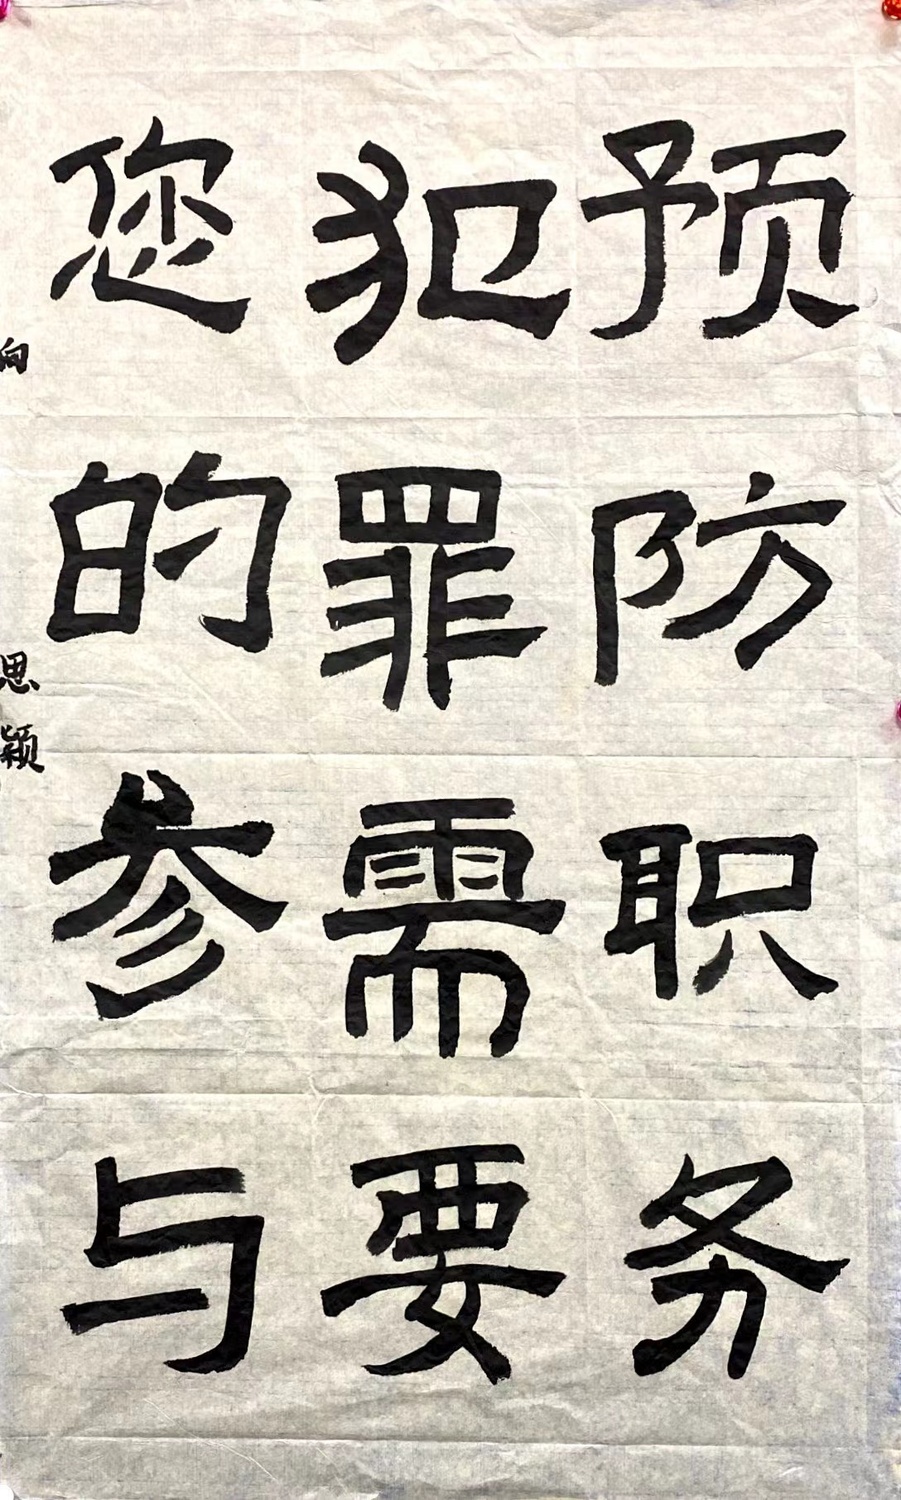 预防职务
犯罪需要
您的参与
向思颖